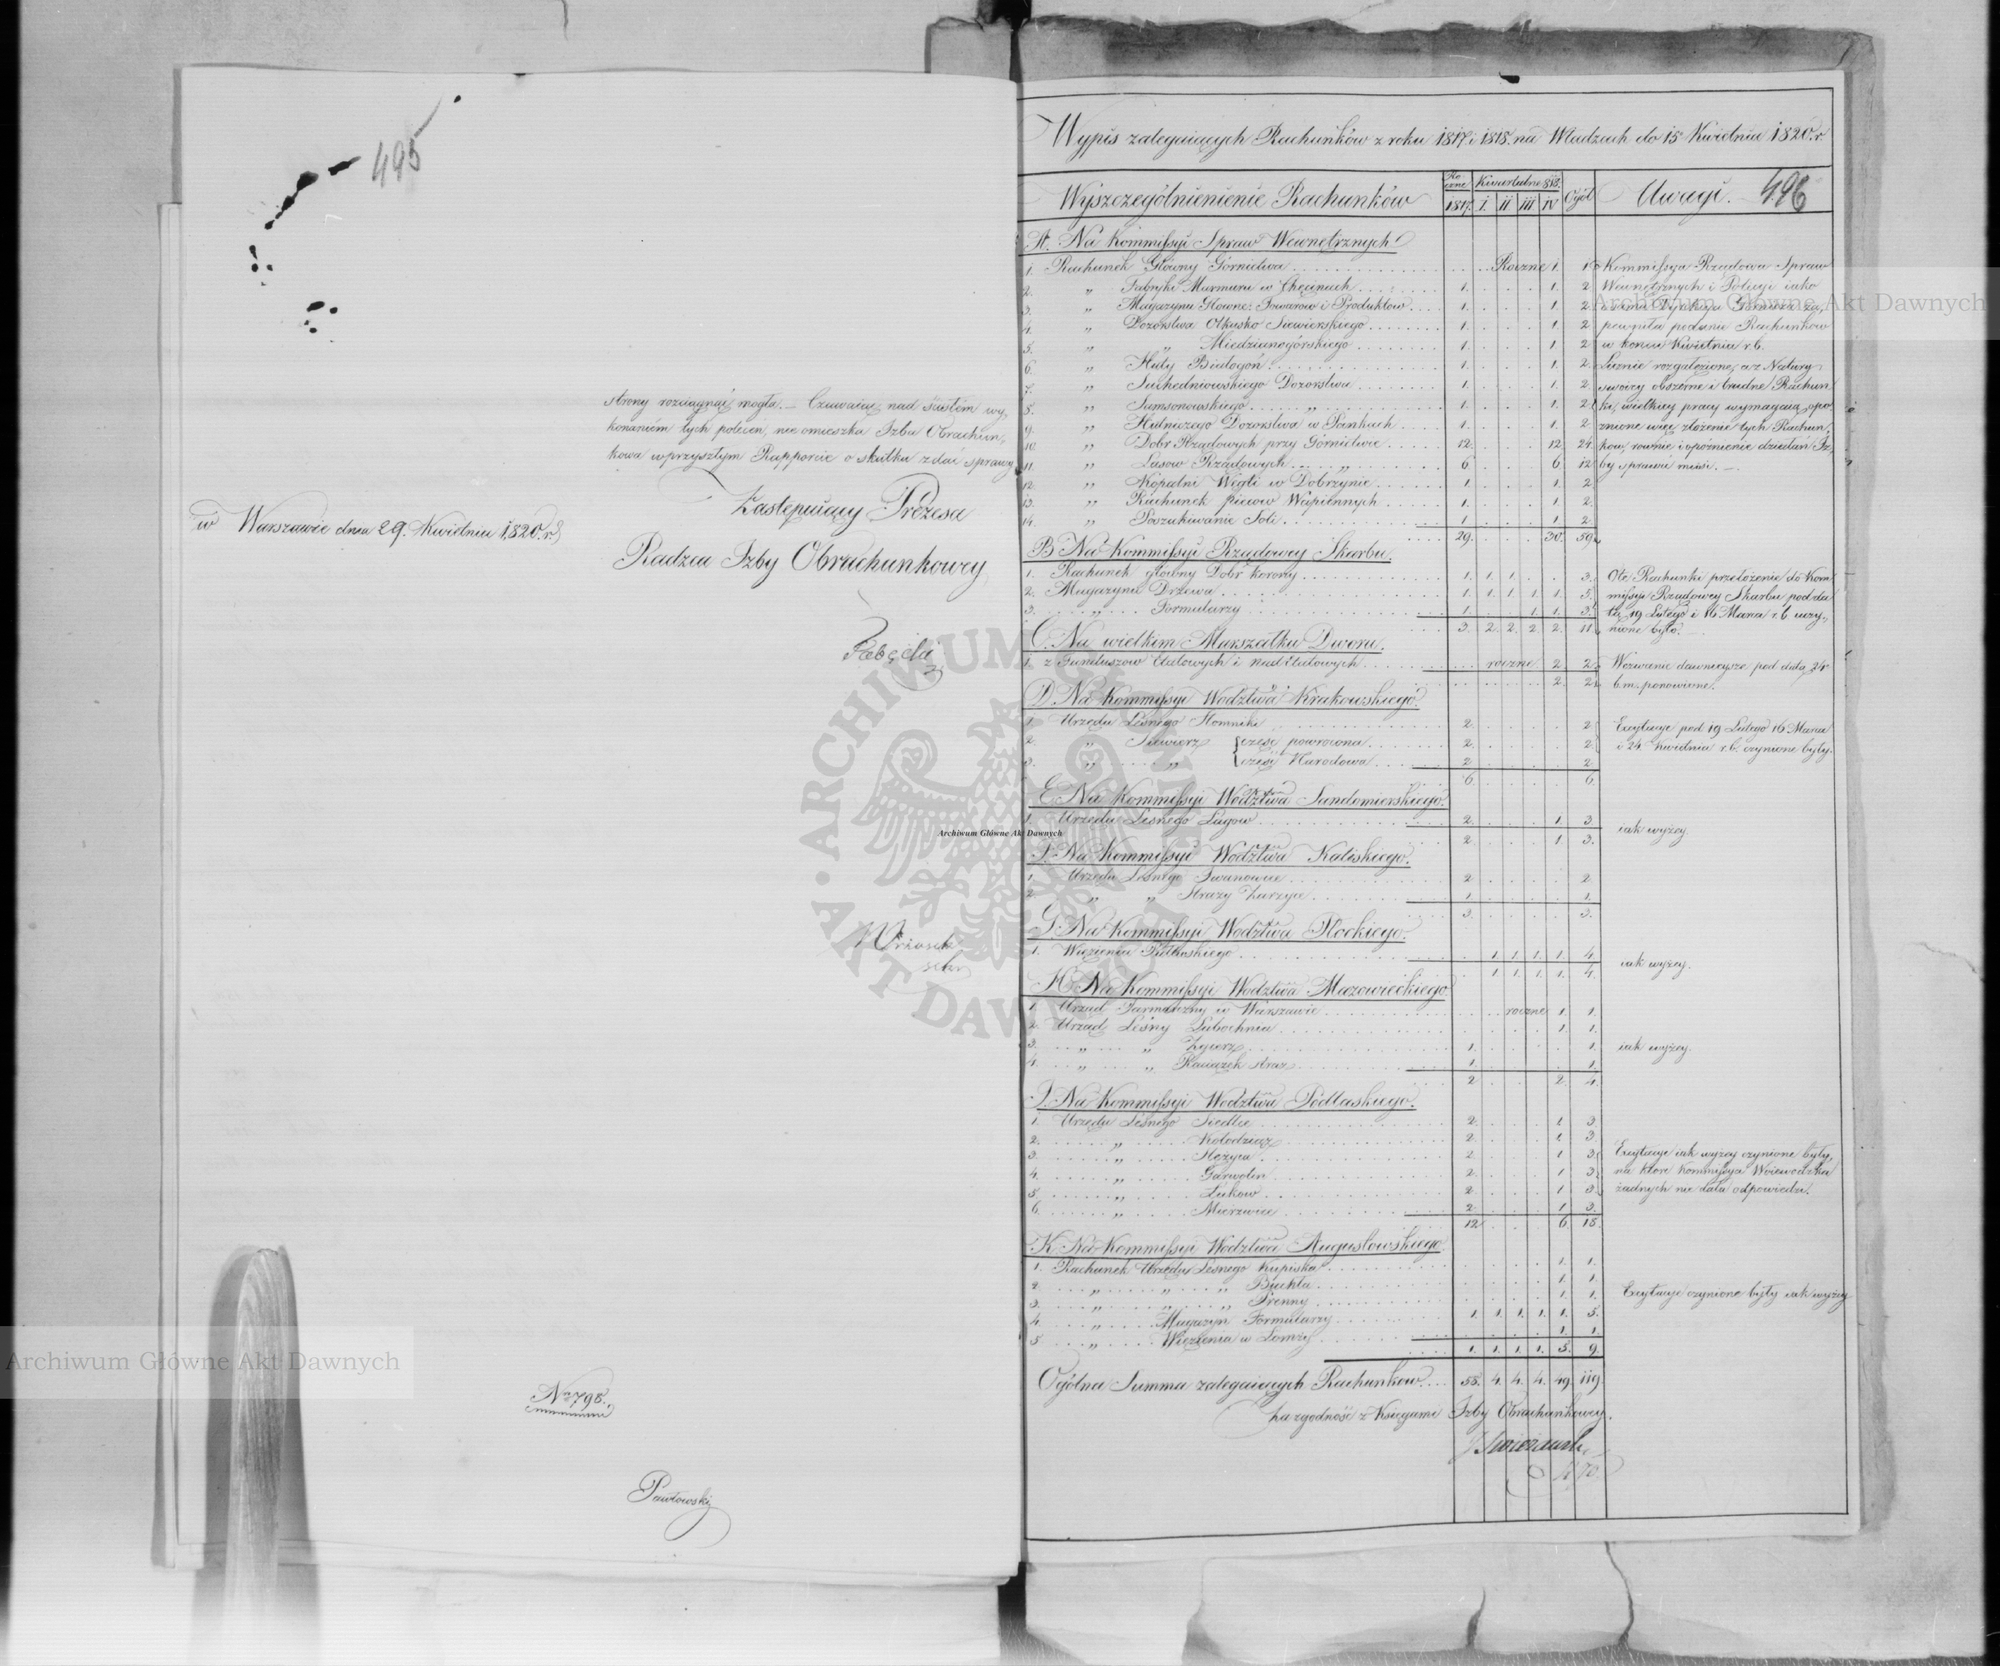 495
strony rozciągnąć mogła. — Czuwaiąc nad ścisłem wy-
konaniem tych poleceń, nie omieszka Izba Obrachun-
kowa w przyszłym Rapporcie o skutku zdać sprawy
Zastępuiący Prezesa
w Warszawie dnia 29. Kwietnia 1820. r.
Radzca Izby Obrachunkowey
No 2798.
Pawłowski
Wypis zalegaiących Rachunków z roku 1817. i 1818. na Władzach do 15 Kwietnia 1820. r.
Wyszczególnienienie Rachunków Ro-czne 1817. Kwartalne 1818. I. II III IV Ogół Uwagi. 496
A. Na Kommissyi Spraw Wewnętrznych
1. Rachunek Główny Górnictwa Roczne 1. 1 Kommissya Rządowa Spraw
2. „ Fabryki Marmuru w Chęcinach 1. 1. 2 Wewnętrznych i Policyi iako
3. „ Magazynu Główne: Towarów i Produktów 1. 1. 2 Dyrekcya Górnicza za-
4. „ Dozorstwa Olkusko Siewierskiego 1. 1. 2 pewniła podanie Rachunków
5. „ „ Miedzianogórskiego 1. 1. 2 w końcu Kwietnia r. b.
6. „ Huty Białogoń 1. 1. 2 Licznie rozgałęzione, a z Natury
7. „ Suchedniowskiego Dozorstwa 1. 1. 2. swoiey obszerne i trudne Rachun
8. „ Samsonowskiego „ 1. 1. 2 ki, wielkiey pracy wymagaią, opo-
9. „ Hutniczego Dozorstwa w Pankach 1. 1. 2 znione więc złożenie tych Rachun-
10. „ Dobr Rządowych przy Górnictwie 12. 12 24. ków, równie i opóźnienie działań Iz-
11. „ Lasow Rządowych „ 6 6. 12 by sprawić musi. —
12. „ Kopalni Węgli w Dobrzynie 1. 1. 2
13. „ Rachunek pieców Wapiennych 1. 1. 2.
14. „ Poszukiwanie Soli 1. 1. 2.
29. 30. 59.
B Na Kommissyi Rządowey Skarbu.
1. Rachunek główny Dobr korony 1. 1. 1. 3. Ote Rachunki przełożenie do Kom
2. Magazynu Drzewa 1. 1. 1. 1. 1. 5. missyi Rządowey Skarbu pod da
3. „ Formularzy 1. 1. 1. 3. tą 19 Lutego i 16 Marca r. b. uczy-
3. 2. 2. 2. 2. 11 nione było.
C. Na wielkim Marszałku Dworu.
1. z Funduszow Etatowych i nad Etatowych roczne 2. 2. Wezwanie dawnieysze pod datą 24
2. 2 b. m. ponowione.
D. Na Kommissyi Wodztwa Krakowskiego.
1. Urzędu Leśnego Słomniki 2. 2 Excytacye pod 19 Lutego 16 Marca
2. „ Siewierz część powrocona 2. 2 i 24 Kwietnia r. b. czynione były.
3. „ „ część Narodowa 2. 2.
6. 6.
E. Na Kommissyi Wodztwa Sandomierskiego.
1. Urzędu Leśnego Łagow 2. 1. 3. iak wyżey.
2. 1. 3.
F. Na Kommissyi Wodztwa Kaliskiego.
1. Urzędu Leśnego Iwanowice 2 2.
2. „ „ Straży Zarzyce 1. 1.
3. 3.
G. Na Kommissyi Wodztwa Płockiego.
1. Więzienia Pułtuskiego 1. 1. 1. 1. 4. iak wyżey.
1. 1. 1. 1. 4.
H. Na Kommissyi Wodztwa Mazowieckiego
1. Urząd Jarmarczny w Warszawie roczne 1. 1.
2. Urząd Leśny Lubochnia 1. 1.
3. „ „ Zgierz 1. 1. iak wyżey.
4. „ „ Raciążek straż 1. 1.
2 2. 4.
I. Na Kommissyi Wodztwa Podlaskiego.
1. Urzędu Leśnego Siedlce 2. 1 3
2. „ Kołodziąż 2. 1. 3.
3. „ Stężyca 2 1 3 Excytacye iak wyżey czynione były,
4. „ Garwolin 2. 1 3 na które Kommissya Woiewodzka
5. „ Łukow 2. 1 3. żadnych nie dała odpowiedzi.
6. „ Mierzwice 2. 1 3.
12. 6. 18.
K. Na Kommissyi Wodztwa Augustowskiego.
1. Rachunek Urzędu Leśnego Kupiska 1. 1.
2. „ „ „ Buchta 1. 1.
3. „ „ „ Prenny 1. 1. Excytacye czynione były iak wyżey
4. „ Magazyn Formularzy 1. 1. 1. 1. 1. 5.
5 „ Więzienia w Łomży 1. 1.
1. 1. 1. 1. 5. 9.
Ogólna Summa zalegaiących Rachunków 58. 4. 4. 4. 49. 119
Za zgodność z Księgami Izby Obrachunkowey.
Archiwum Główne Akt Dawnych
Archiwum Główne Akt Dawnych
Archiwum Główne Akt Dawnych
ARCHIWUM GŁÓWNE AKT DAWNYCH